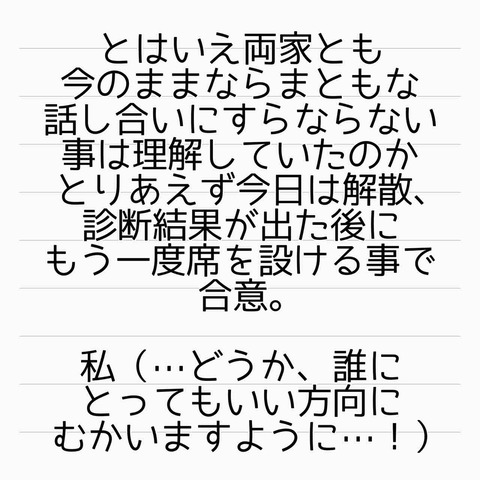 とはいえ両家とも
今のままならまともな
話し合いにすらならない
事は理解していたのか
とりあえず今日は解散、
診断結果が出た後に
もう一度席を設ける事で
合意。
私（…どうか、誰に
とってもいい方向に
むかいますように…！）